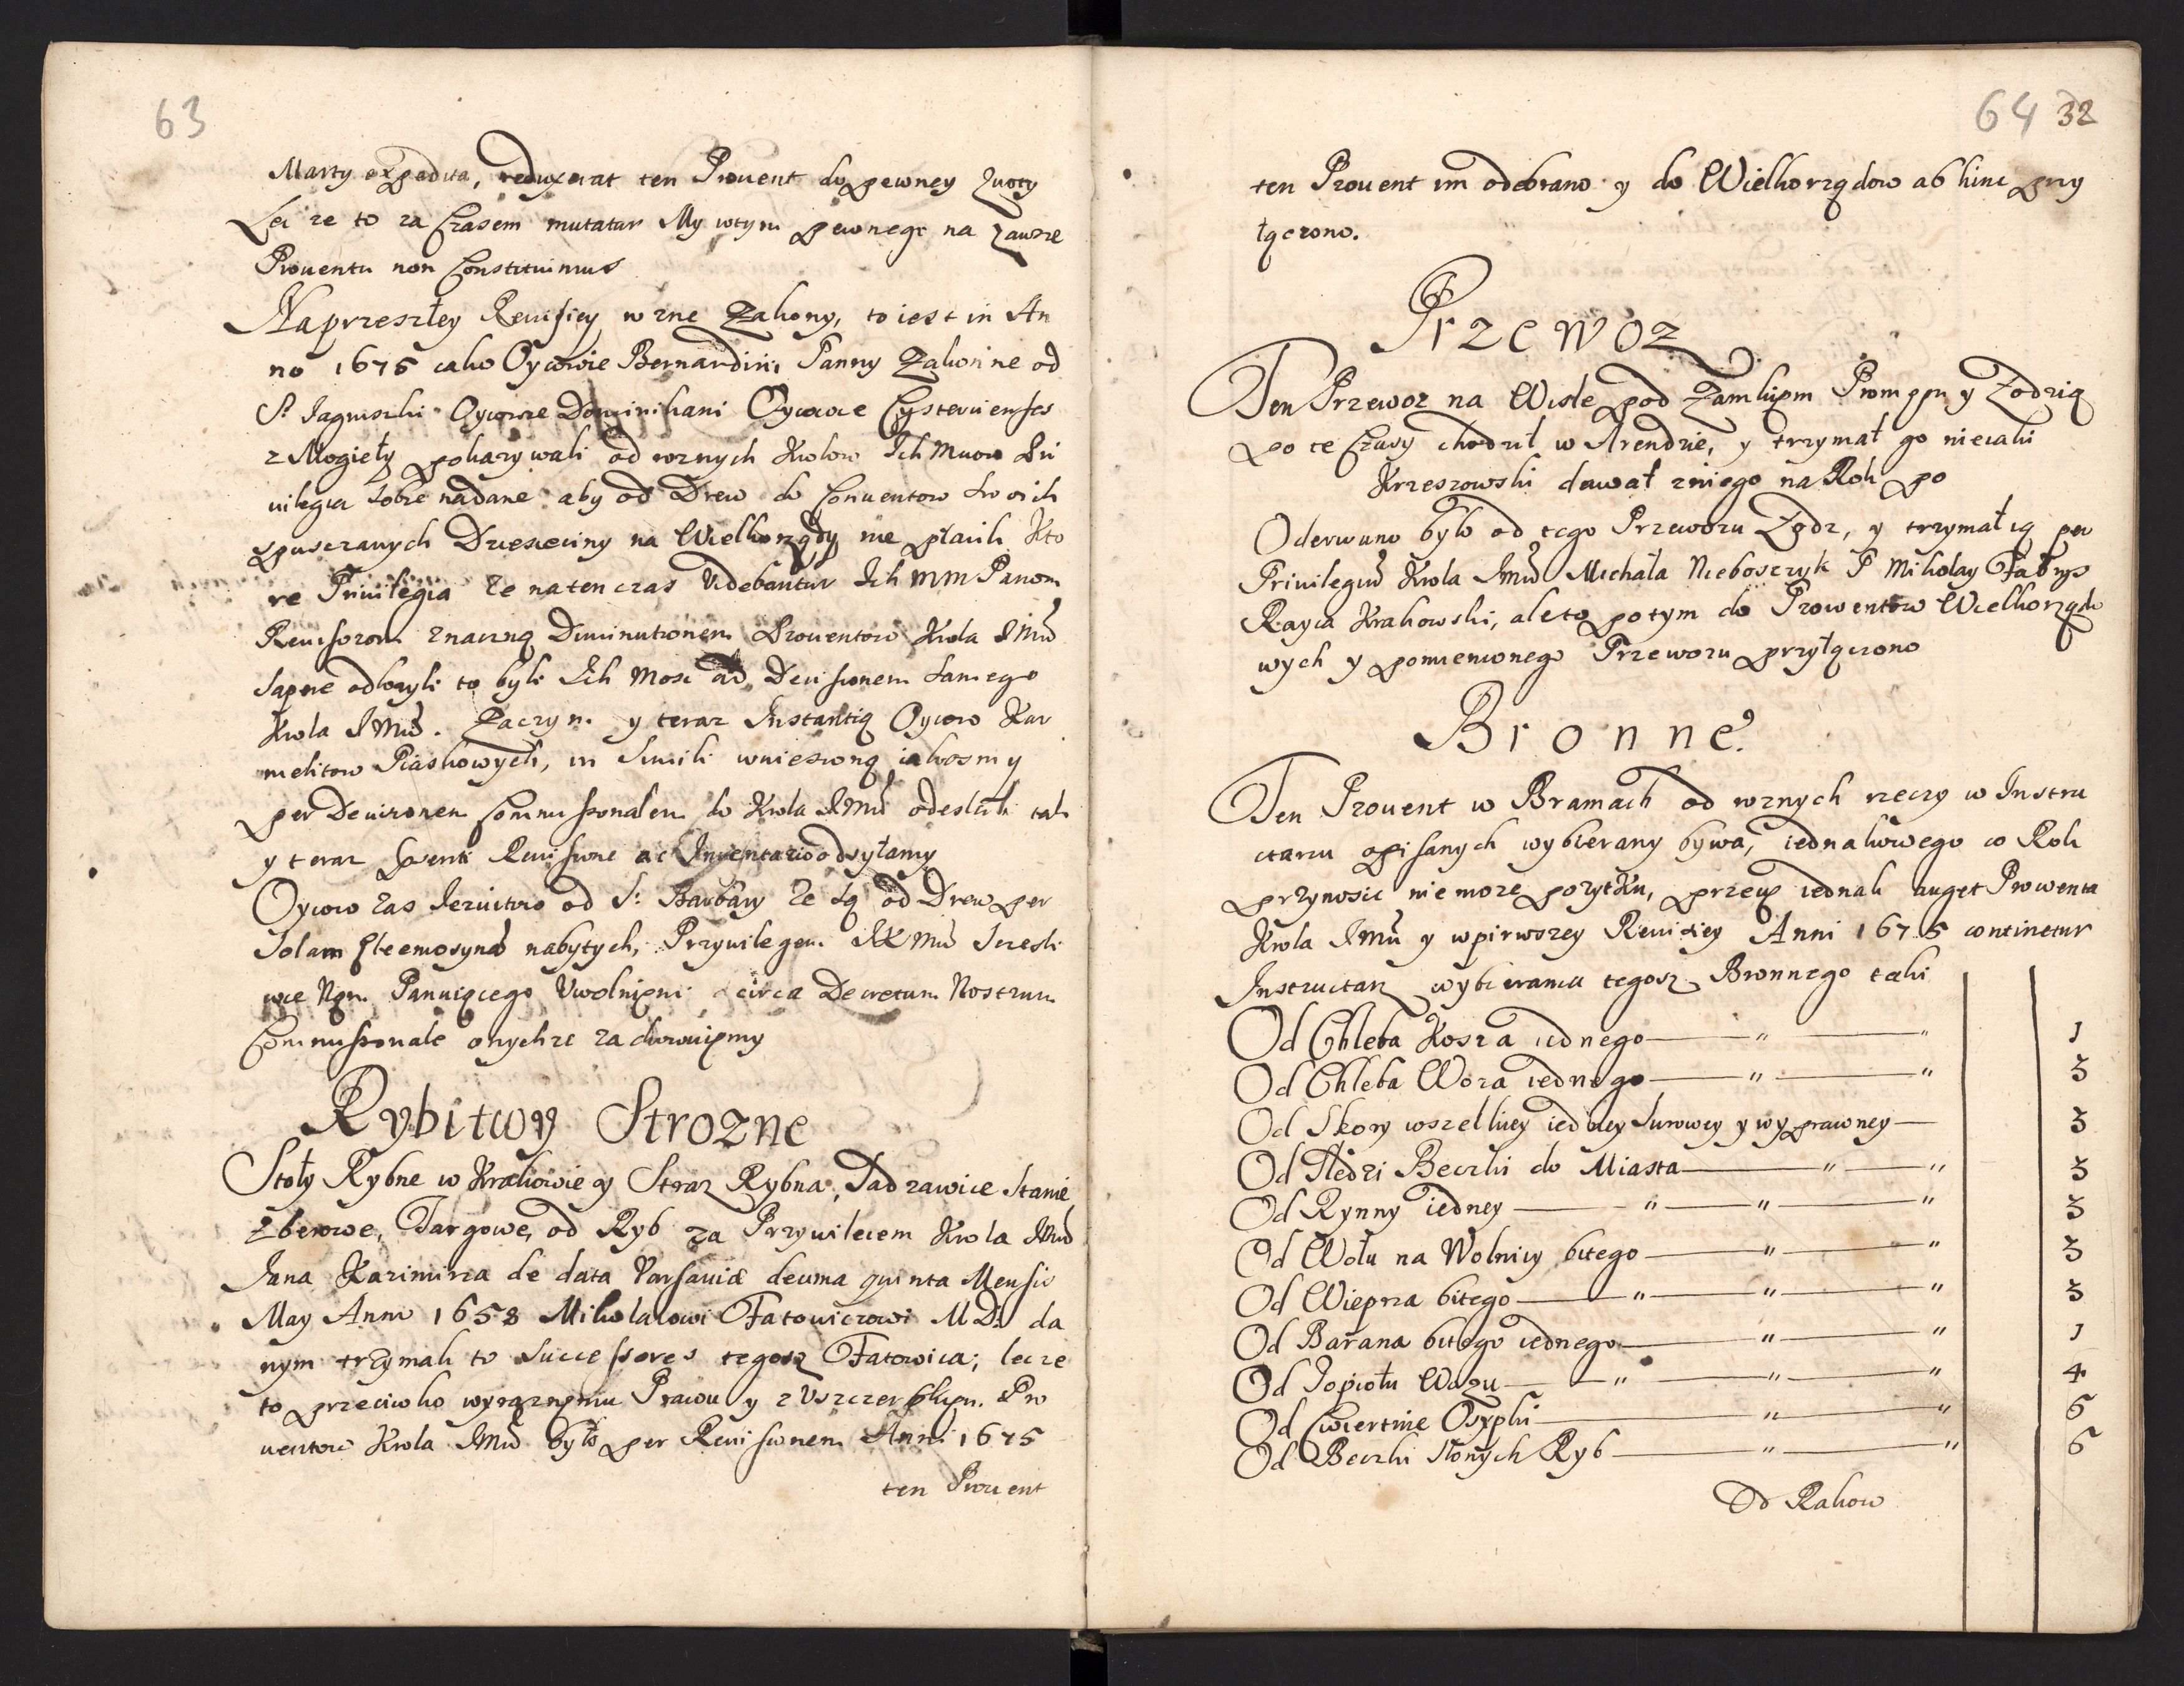 63
Marty expedita, reduxerat ten Prouent do pewney quoty
Lecz ze to za Czasem mutatur My wtym pewnego na zawsze
Prouentu non Constituimus
Naprzeszłey Reuisiey rozne Zakony, to iest in An
no 1675 iako Oycowie Bernardini Panny Zakonne od
S. Iagnieszki Oycowie Dominikani Oycowie Cystercienses
z Mogieły pokazywali od roznych Krolow Ich Mciow Pri
uilegia sobie nadane aby od Drew do Conuentow swoich
spusczanych Dziesieciny na Wielkorządy nie płacili Kto
re Priuilegia ze natenczas Videbantur Ich MM Panom
Reuisorom znaczną Diminutionem Prouentow Krola IMci
sapere odłozyli to byli Ich Mosc ad Decisionem samego
Krola IMci. Zaczym y teraz Instantią Oycow Kar
melitow Piaskowych, in simili wniesioną iakosmy
per Decisionem Commissionalem do Krola IMci odesłali tak
y teraz praesenti Reuisione ac Inuentario odsyłamy
Oycow zas Iezuitow od S: Barbary ze są od Drew per
solam Eleemosynam nabytych, Przywilegem IK Mci Szczesli
wie Nam Panuiącego Vwolnieni circa Decretum Nostrum
Commissionale onychze zachowuiemy
Rybitwy Strozne
Stoły Rybne w Krakowie y Straz Rybna, Sadzawice Stanie
Zberowe, Targowe, od Ryb za Przywileiem Krola IMci
Iana Kazimirza de data Varsauiae decima quinta Mensis
May Anno 1658 Mikołaiowi Fatowiczowi M D. da
nym trzymali to Successores tegosz Fatowica; lecz ze
to przeciwko wyraznemu Prawu y z Vszczerbkiem Pro
uentow Krola IMci było per Reuisionem Anni 1675
ten Prouent
64 32
ten Prouent im odebrano y do Wielkorządow ab hinc przy
łączono.
Przewoz
Ten Przewoz na Wisle pod Zamkiem Promem y Łodzią
po te Czasy chodził w Arendzie, y trzymał go nieiaki
Krzeszowski dawał zniego na Rok po
Oderwano było od tego Przewozu Łodz, y trzymał ią per
Priuilegium Krola IMci Michała Nieboszczyk P Mikołay
Rayca Krakowski, ale to potym do Prowentow Wielkorządo
wych y pomienionego Przewozu przyłączono
Bronne.
Ten Prouent w Bramach od roznych rzeczy w Instru
ctarzu opisanych wybierany bywa, iednakowego co Rok
przynosic niemoze pozytku, przecię iednak auget Prowenta
Krola IMci y wpirwszey Reuisiey Anni 1675 continetur
Instructarz wybierania tegosz Bronnego taki
Od Chleba Kosza iednego — " — " 1
Od Chleba Woza iednego — " — " 3
Od Skory wszelkiey iedney Surowey y wyprawney — 3
Od Sledzi Beczki do Miasta — " — " 3
Od Rynny iedney — " — " — " 3
Od Wołu na Wolnicy bitego — " — " 3
Od Wieprza bitego — " — " — " 3
Od Barana bitego iednego — " — " 1
Od Popiołu Wozu — " — " — " 4
Od Cwiertnie Osypki — " — " 6
Od Beczki słonych Ryb — " — " 6
Od Rakow